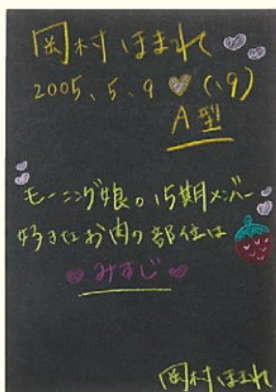 岡村ほまれ
2005、5、9 (19)
A型
モーニング娘。15期メンバー
好きなお肉の部位は
みすじ
岡村ほまれ